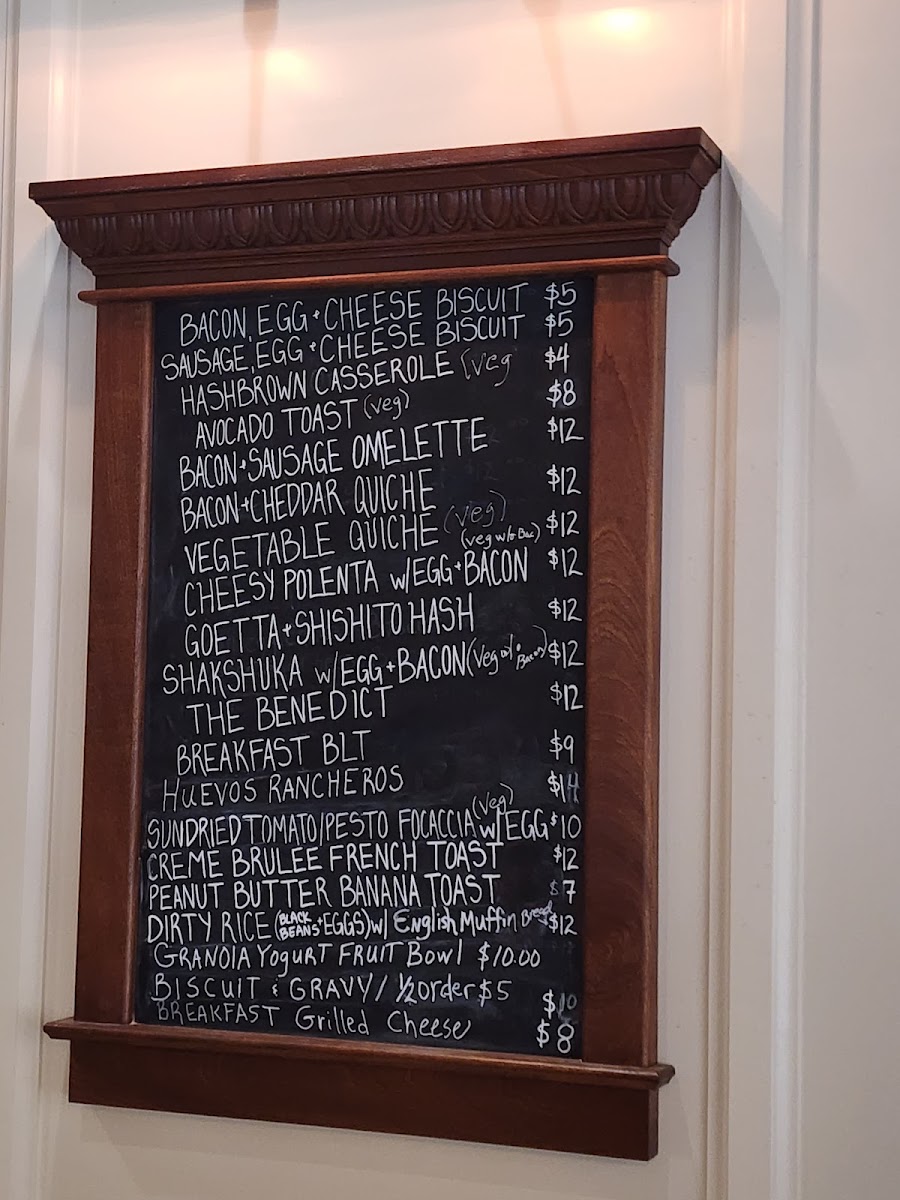 BACON, EGG + CHEESE BISCUIT $5
SAUSAGE, EGG + CHEESE BISCUIT $5
HASHBROWN CASSEROLE (veg $4
AVOCADO TOAST (veg) $8
BACON + SAUSAGE OMELETTE $12
BACON + CHEDDAR QUICHE $12
VEGETABLE QUICHE (veg) $12
(veg w/o Bac)
CHEESY POLENTA w/EGG + BACON $12
GOETTA + SHISHITO HASH $12
SHAKSHUKA w/EGG + BACON (veg w/o Bacon) $12
THE BENEDICT $12
BREAKFAST BLT $9
HUEVOS RANCHEROS $14
(veg)
SUNDRIED TOMATO/PESTO FOCACCIA w/EGG $10
CREME BRULEE FRENCH TOAST $12
PEANUT BUTTER BANANA TOAST $7
DIRTY RICE (BLACK BEANS + EGGS) w/ English Muffin Bread $12
GRANOLA YogURT FRUIT BowL $10.00
BISCUIT & GRAVY / 1/2 order $5 $10
BREAKFAST Grilled Cheese $8